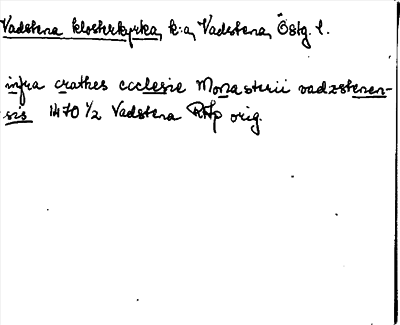 Vadstena klosterkyrka, k:a, Vadstena, Östg. l.
infra crathes ecclesie Monasterii vadzstenen-
sis 1470 1/2 Vadstena RAp orig.